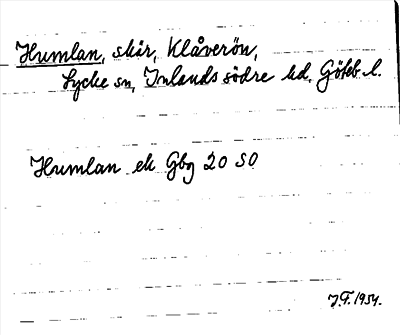 Humlan, skär, Klåverön,
Lycke sn, Inlands södre hd, Göteb. l.
Humlan ek Gbg 20 SO
J.F. 1954.